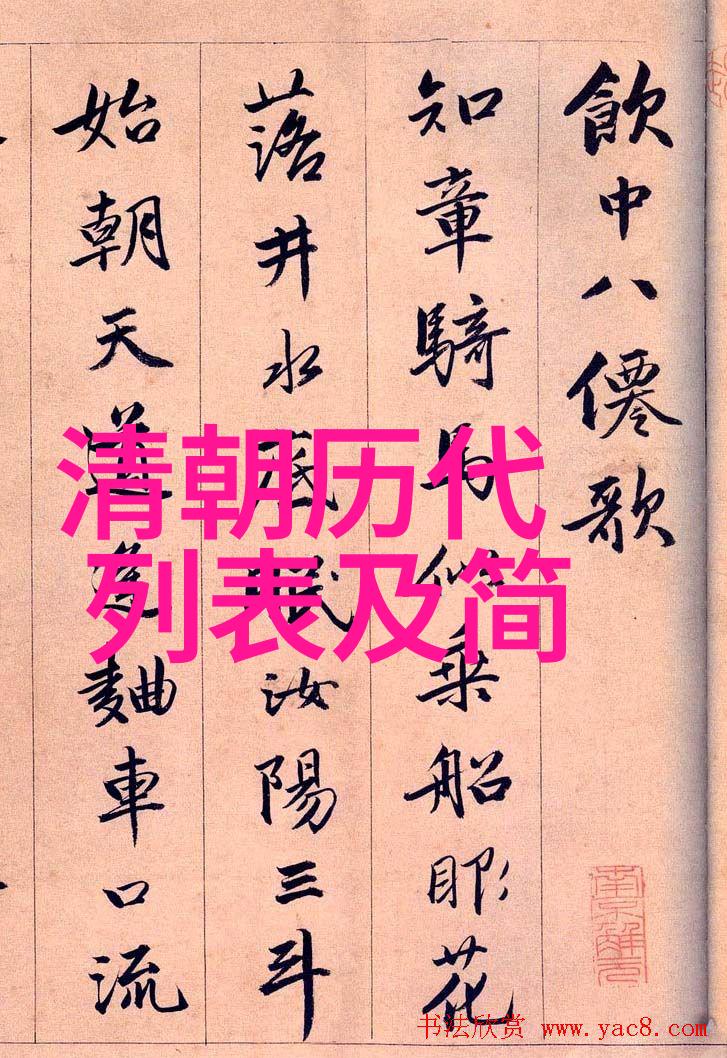 飲中八僊歌
知章騎馬似乘船眼花
落井水底眠汝陽三斗
始朝天道逢麯車口流
清朝历代
列表及简
南京解元
书法欣赏 www.yac8.com